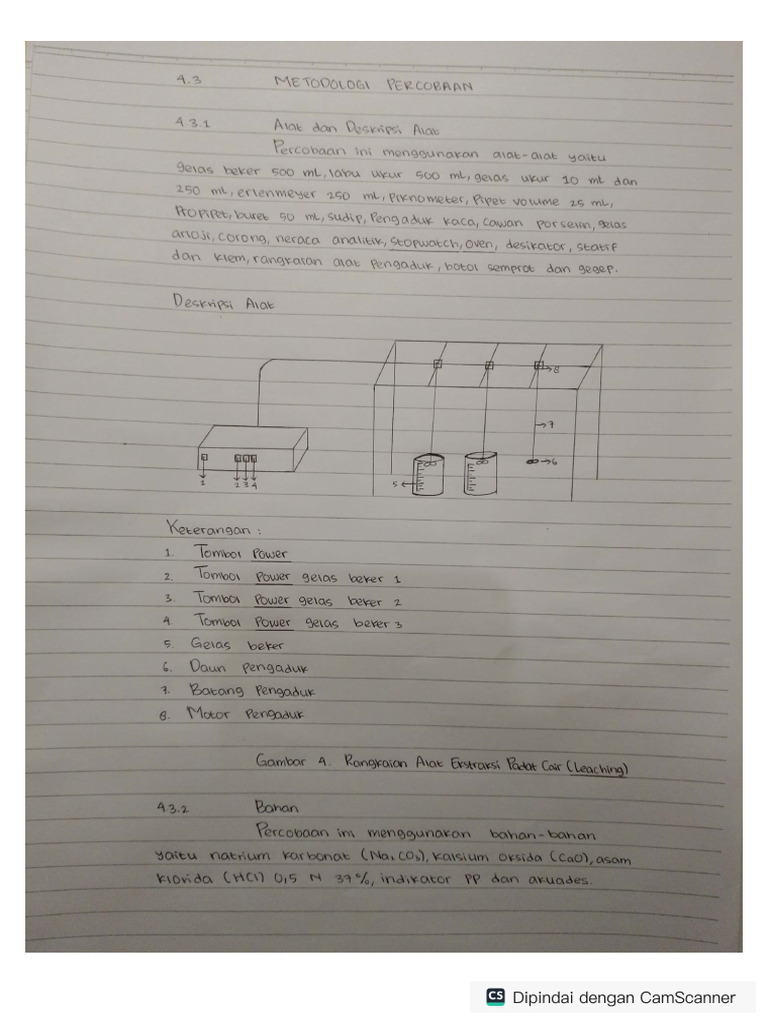 4.3 METODOLOGI PERCOBAAN
4.3.1 Alat dan Deskripsi Alat
Percobaan ini menggunakan alat-alat yaitu
gelas beker 500 mL, labu ukur 500 mL, gelas ukur 10 ml dan
250 mL, erlenmeyer 250 mL, piknometer, Pipet volume 25 mL,
Propipet, buret 50 mL, sudip, Pengaduk kaca, cawan porselin, gelas
arloji, corong, neraca analitik, stopwatch, oven, desikator, statif
dan klem, rangkaian alat pengaduk, botol semprot dan gegep.
Deskripsi Alat
8
7
6
5
1 2 3 4
Keterangan :
1. Tombol Power
2. Tombol Power gelas beker 1
3. Tombol Power gelas beker 2
4. Tombol Power gelas beker 3
5. Gelas beker
6. Daun pengaduk
7. Batang Pengaduk
8. Motor Pengaduk
Gambar 4. Rangkaian Alat Ekstraksi Padat Cair (Leaching)
4.3.2 Bahan
Percobaan ini menggunakan bahan-bahan
yaitu natrium karbonat (Na₂CO₃), kalsium oksida (CaO), asam
klorida (HCl) 0,5 N 37%, indikator PP dan akuades.
CS Dipindai dengan CamScanner